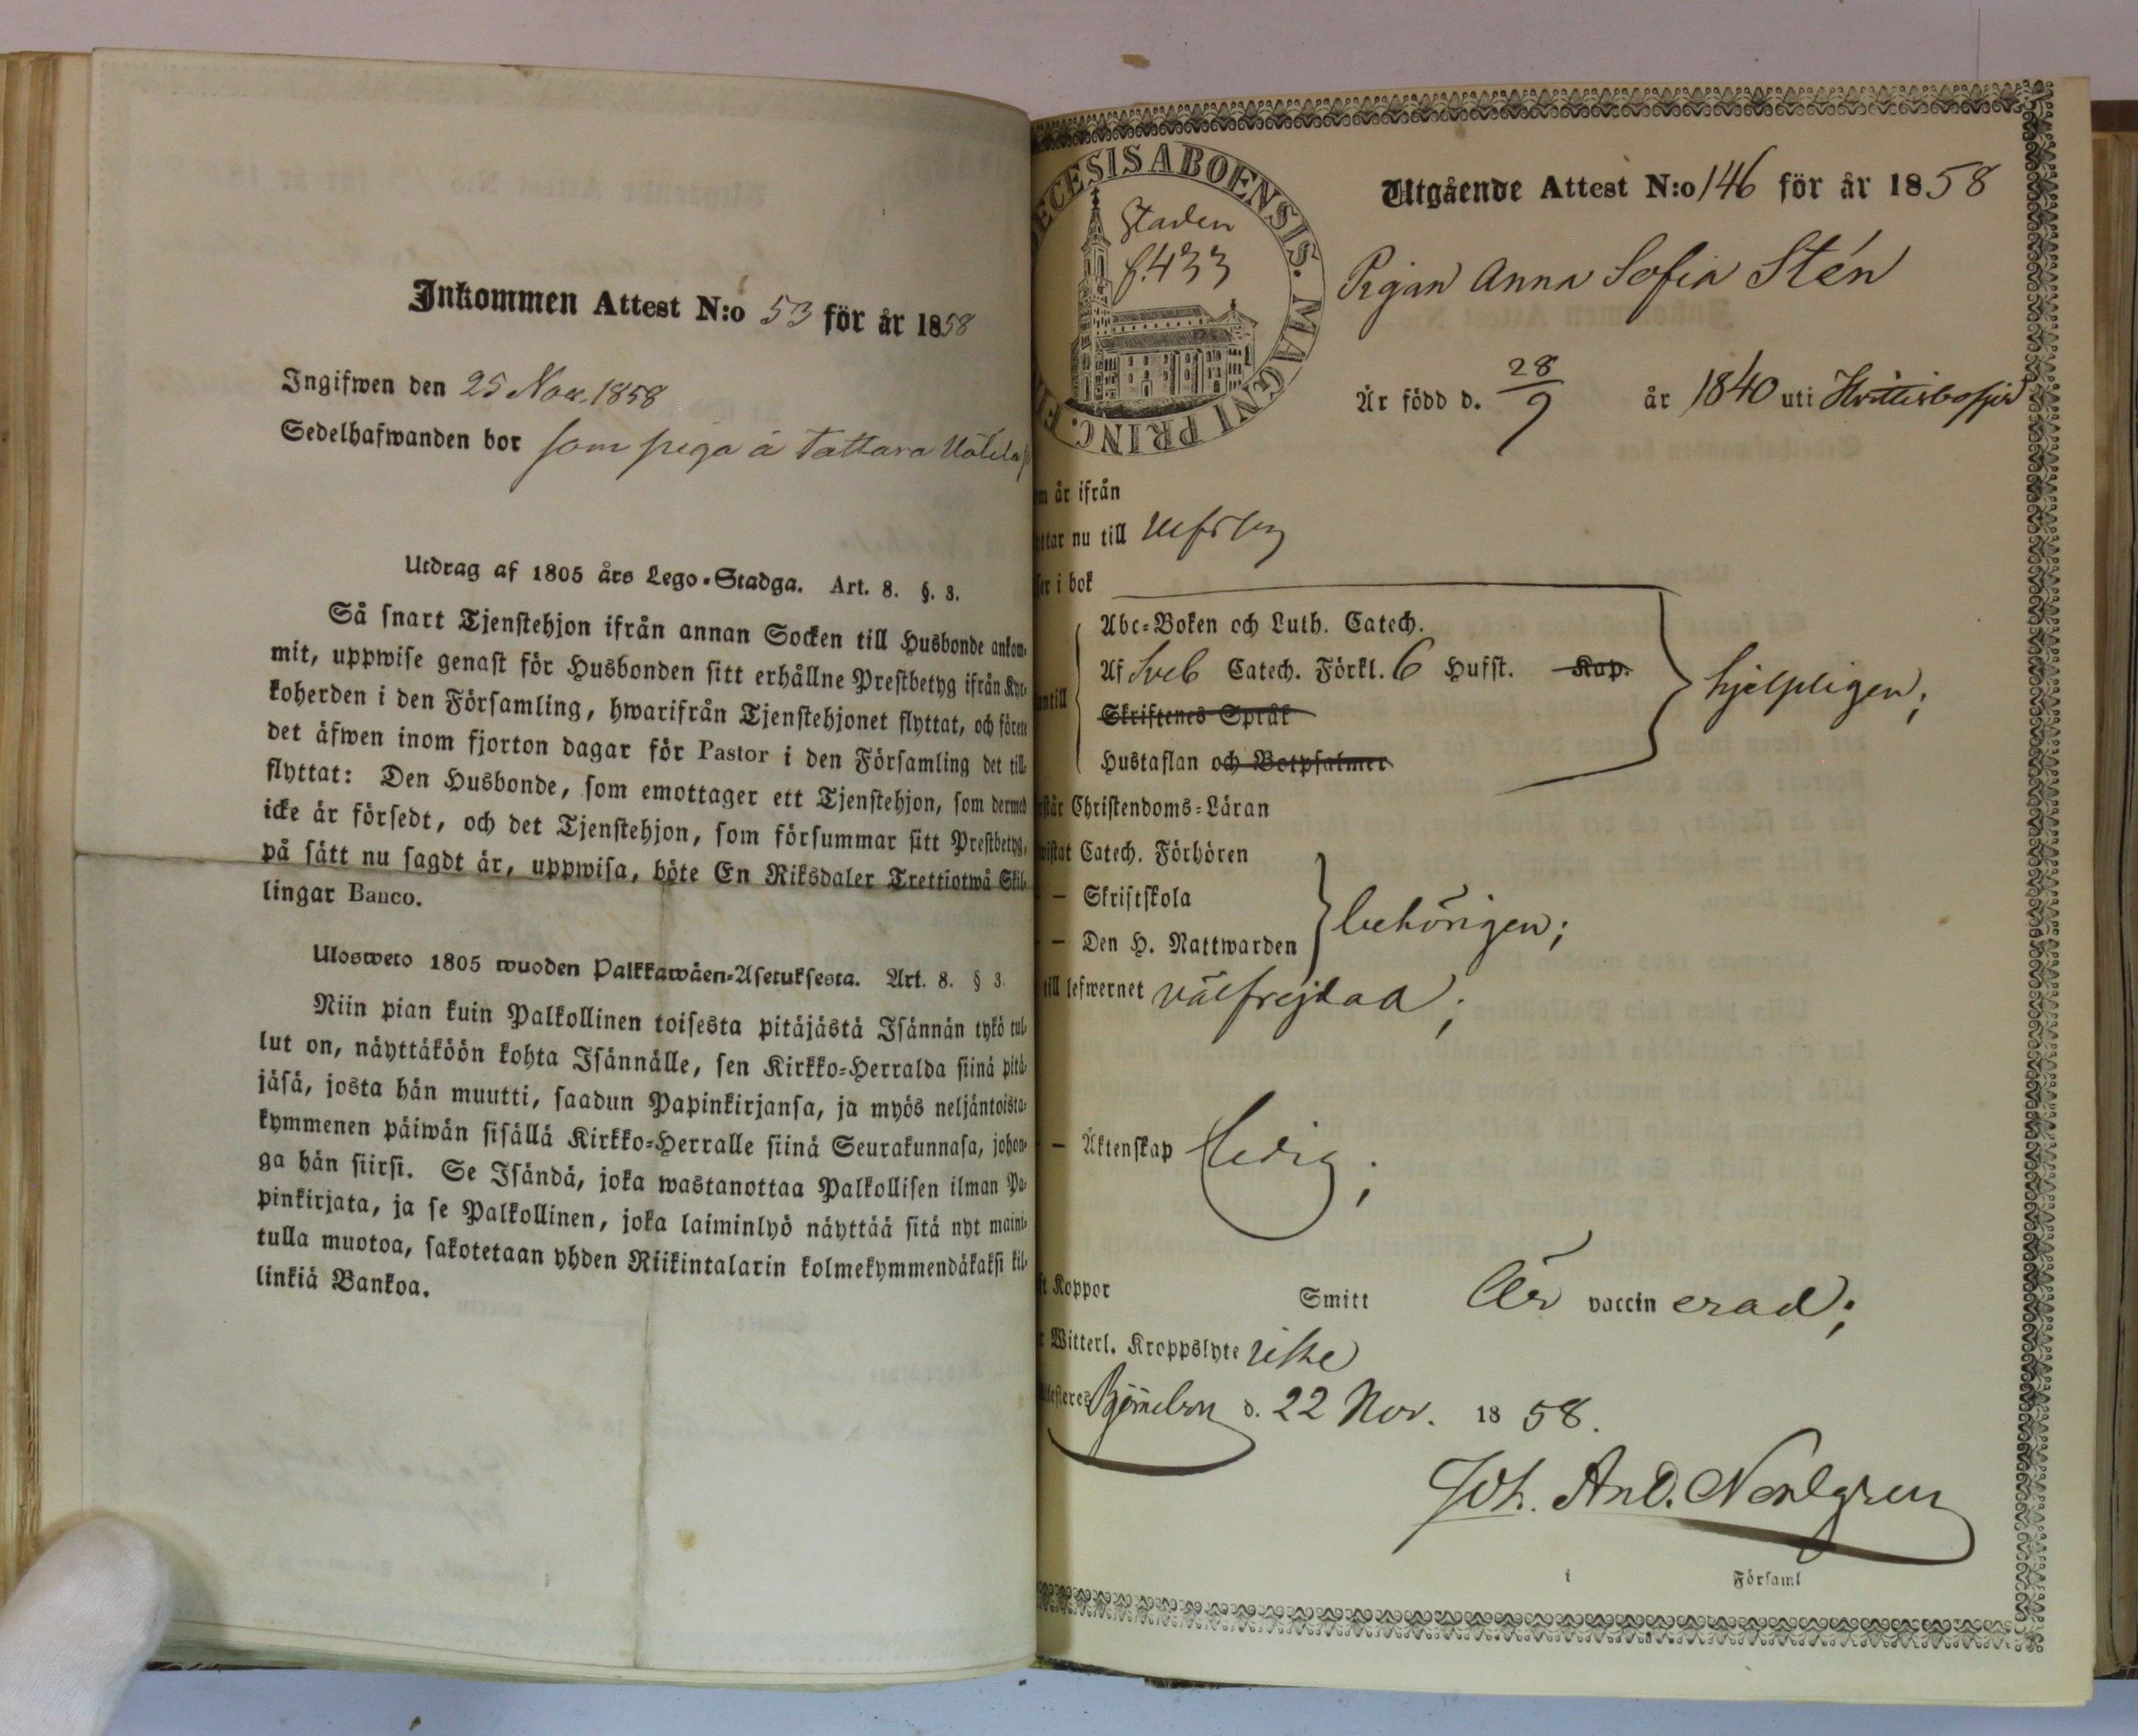 Inkommen Attest N:o 53 för år 1858
Ingifwen den 25 Nov. 1858
Sedelhafwanden bor som piga å Tattara
Utdrag af 1805 års Lego-Stadga. Art. 8. §. 3.
Så snart Tjenstehjon ifrån annan Socken till Husbonde ankom-
mit, uppwise genast för Husbonden sitt erhållne Prestbetyg ifrån Kyr-
koherden i den Församling, hwarifrån Tjenstehjonet flyttat, och förete
det äfwen inom fjorton dagar för Pastor i den Församling det till-
flyttat: Den Husbonde, som emottager ett Tjenstehjon, som dermed
icke är försedt, och det Tjenstehjon, som försummar sitt Prestbetyg,
på sätt nu sagdt är, uppwisa, böte En Riksdaler Trettiotwå Skil-
lingar Banco.
Ulosweto 1805 wuoden Palkkawäen-Asetuksesta. Art. 8. § 3.
Niin pian kuin Palkollinen toisesta pitäjästä Isännän tykö tul-
lut on, näyttäköön kohta Isännälle, sen Kirkko-Herralda siinä pitä-
jäsä, josta hän muutti, saadun Papinkirjansa, ja myös neljäntoista-
kymmenen päiwän sisällä Kirkko-Herralle siinä Seurakunnasa, johon-
ga hän siirsi. Se Isändä, joka wastanottaa Palkollisen ilman Pa-
pinkirjata, ja se Palkollinen, joka laiminlyö näyttää sitä nyt maini-
tulla muotoa, sakotetaan yhden Riikintalarin kolmekymmendäkaksi kil-
linkiä Bankoa.
ECESIS ABOENSIS. MAGNI PRINC. F
Staden
f. 433
Utgående Attest N:o 146 för år 1858
Pigan Anna Sofia Stén
Är född d. 28/9 år 1840 uti
m är ifrån
ttar nu till Ulfsby
ser i bok
Abc-Boken och Luth. Catech.
Af Sveb Catech. Förkl. 6 Hufst. Kap.
antill
Skriftenes Språk
Hustaflan och Botpsalmer
hjelpligen;
rstår Christendoms-Läran
wistat Catech. Förhören
— Skriftskola
— Den H. Nattwarden
behörigen;
till lefwernet välfrejdad;
— Äktenskap ledig;
t Koppor Smitt Är vaccinerad;
r Witterl. Kroppslyte icke
ttesteres Björneborg d. 22 Nov. 1858.
Joh. And. Nordgren
i Församl